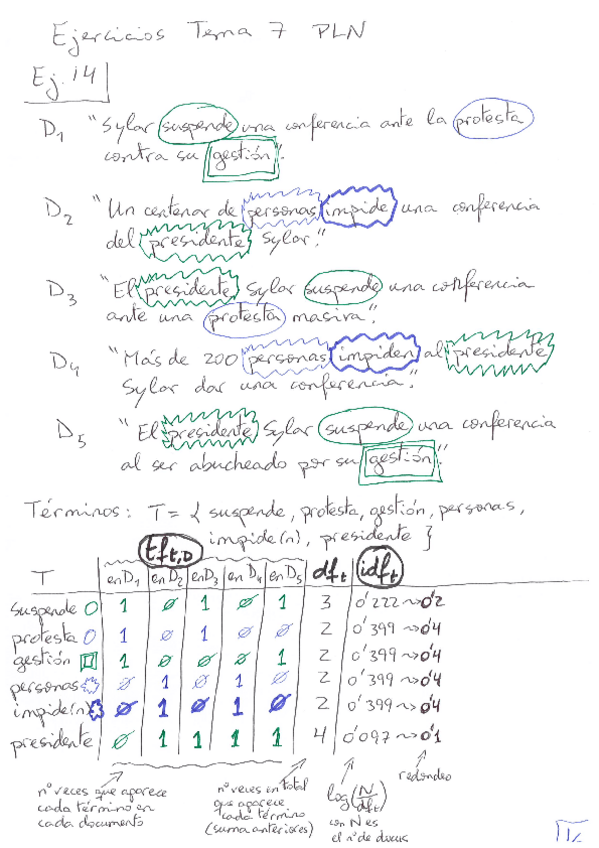 Ejercicios Tema 7 PLN
Ej. 14
D1 "Sylar suspende una conferencia ante la protesta
contra su gestión".
D2 "Un centenar de personas impide una conferencia
del presidente Sylar."
D3 "El presidente Sylar suspende una conferencia
ante una protesta masiva".
D4 "Más de 200 personas impiden al presidente
Sylar dar una conferencia."
D5 "El presidente Sylar suspende una conferencia
al ser abucheado por su gestión".
Términos: T = { suspende, protesta, gestión, personas,
impide(n), presidente }
tft,D
T en D1 en D2 en D3 en D4 en D5 dft idft
suspende 1 0 1 0 1 3 0'222 ~> 0'2
protesta 1 0 1 0 0 2 0'399 ~> 0'4
gestión 1 0 0 0 1 2 0'399 ~> 0'4
personas 0 1 0 1 0 2 0'399 ~> 0'4
impide(n) 0 1 0 1 0 2 0'399 ~> 0'4
presidente 0 1 1 1 1 4 0'097 ~> 0'1
nº veces que aparece
cada término en
cada documento
nº veces en total
que aparece
cada término
(suma anteriores)
log(N/dft)
con N es
el nº de docus
redondeo